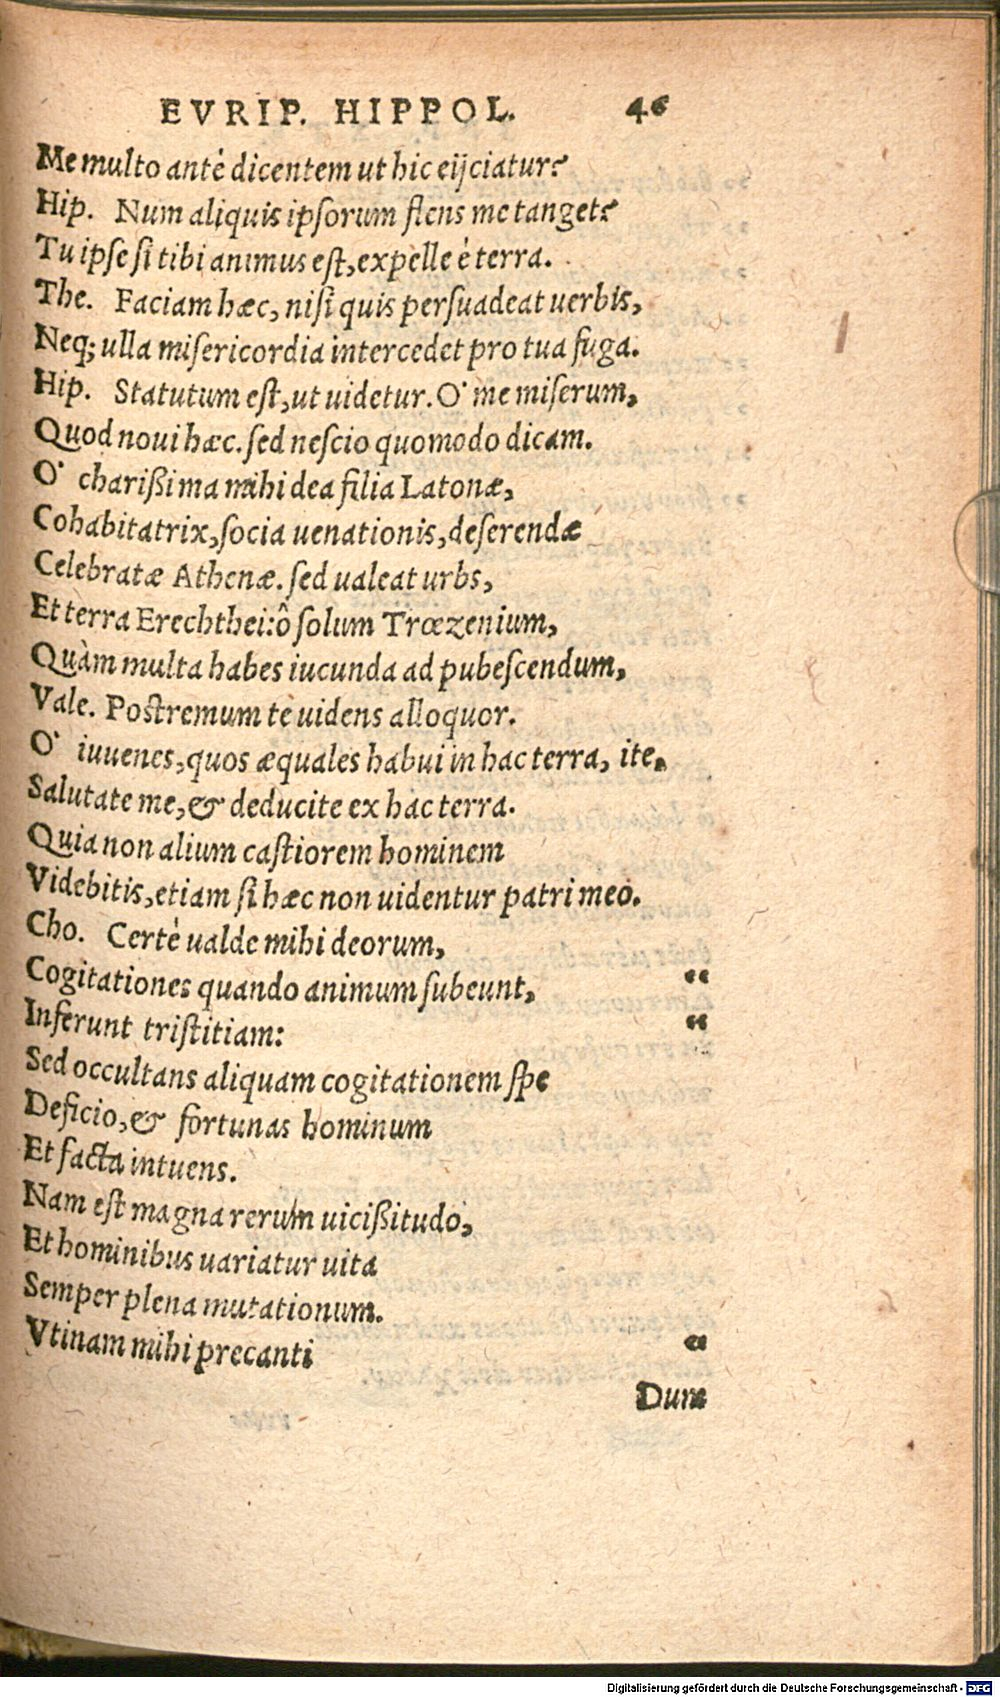 EVRIP. HIPPOL. 46
Me multo antè dicentem ut hic eijciatur?
Hip. Num aliquis ipſorum flens me tanget?
Tu ipſe ſi tibi animus eſt, expelle è terra.
The. Faciam hæc, niſi quis perſuadeat uerbis,
Neq; ulla miſericordia intercedet pro tua fuga.
Hip. Statutum eſt, ut uidetur. O' me miſerum,
Quod noui hæc. ſed neſcio quomodo dicam.
O' charißima mihi dea filia Latonæ,
Cohabitatrix, ſocia uenationis, deſerendæ
Celebratæ Athenæ. ſed ualeat urbs,
Et terra Erechthei: ô ſolum Trœzenium,
Quàm multa habes iucunda ad pubeſcendum,
Vale. Poſtremum te uidens alloquor.
O' iuuenes, quos æquales habui in hac terra, ite,
Salutate me, & deducite ex hac terra.
Quia non alium caſtiorem hominem
Videbitis, etiam ſi hæc non uidentur patri meo.
Cho. Certè ualde mihi deorum,
Cogitationes quando animum ſubeunt, “
Inferunt triſtitiam: “
Sed occultans aliquam cogitationem ſpe
Deficio, & fortunas hominum
Et facta intuens.
Nam eſt magna rerum uicißitudo,
Et hominibus uariatur uita
Semper plena mutationum.
Vtinam mihi precanti “
Dum
Digitalisierung gefördert durch die Deutsche Forschungsgemeinschaft - DFG